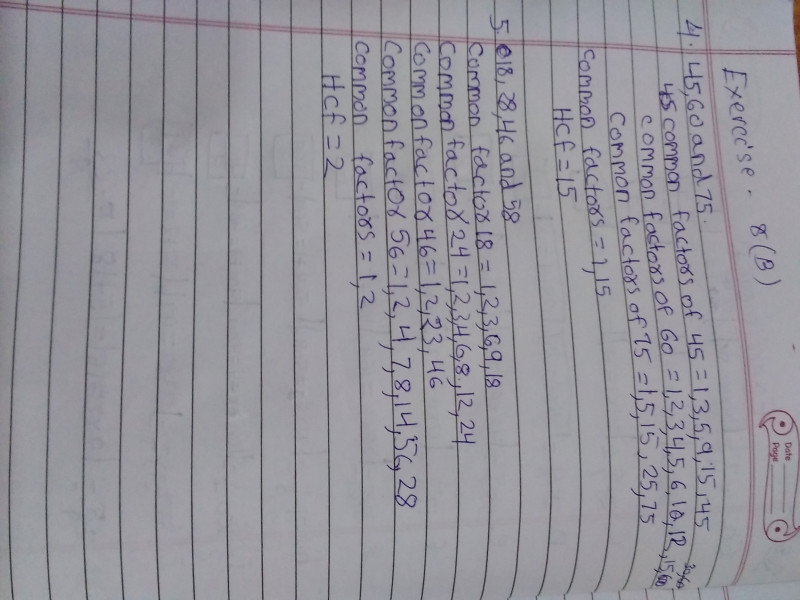 Date
Page
Exercise - 8(B)
4. 45,60 and 75.
45 common factors of 45 = 1,3,5,9,15,45
common factors of 60 = 1,2,3,4,5,6,10,12,15,60
30,60
common factors of 75 = 1,5,15,25,75
common factors = 1,15
Hcf = 15
5. 18, 28,46 and 58
common factor 18 = 1,2,3,6,9,18
common factor 24 = 1,2,3,4,6,8,12,24
common factor 46 = 1,2,23,46
common factor 56 = 1,2,4,7,8,14,56,28
common factors = 1,2
Hcf = 2